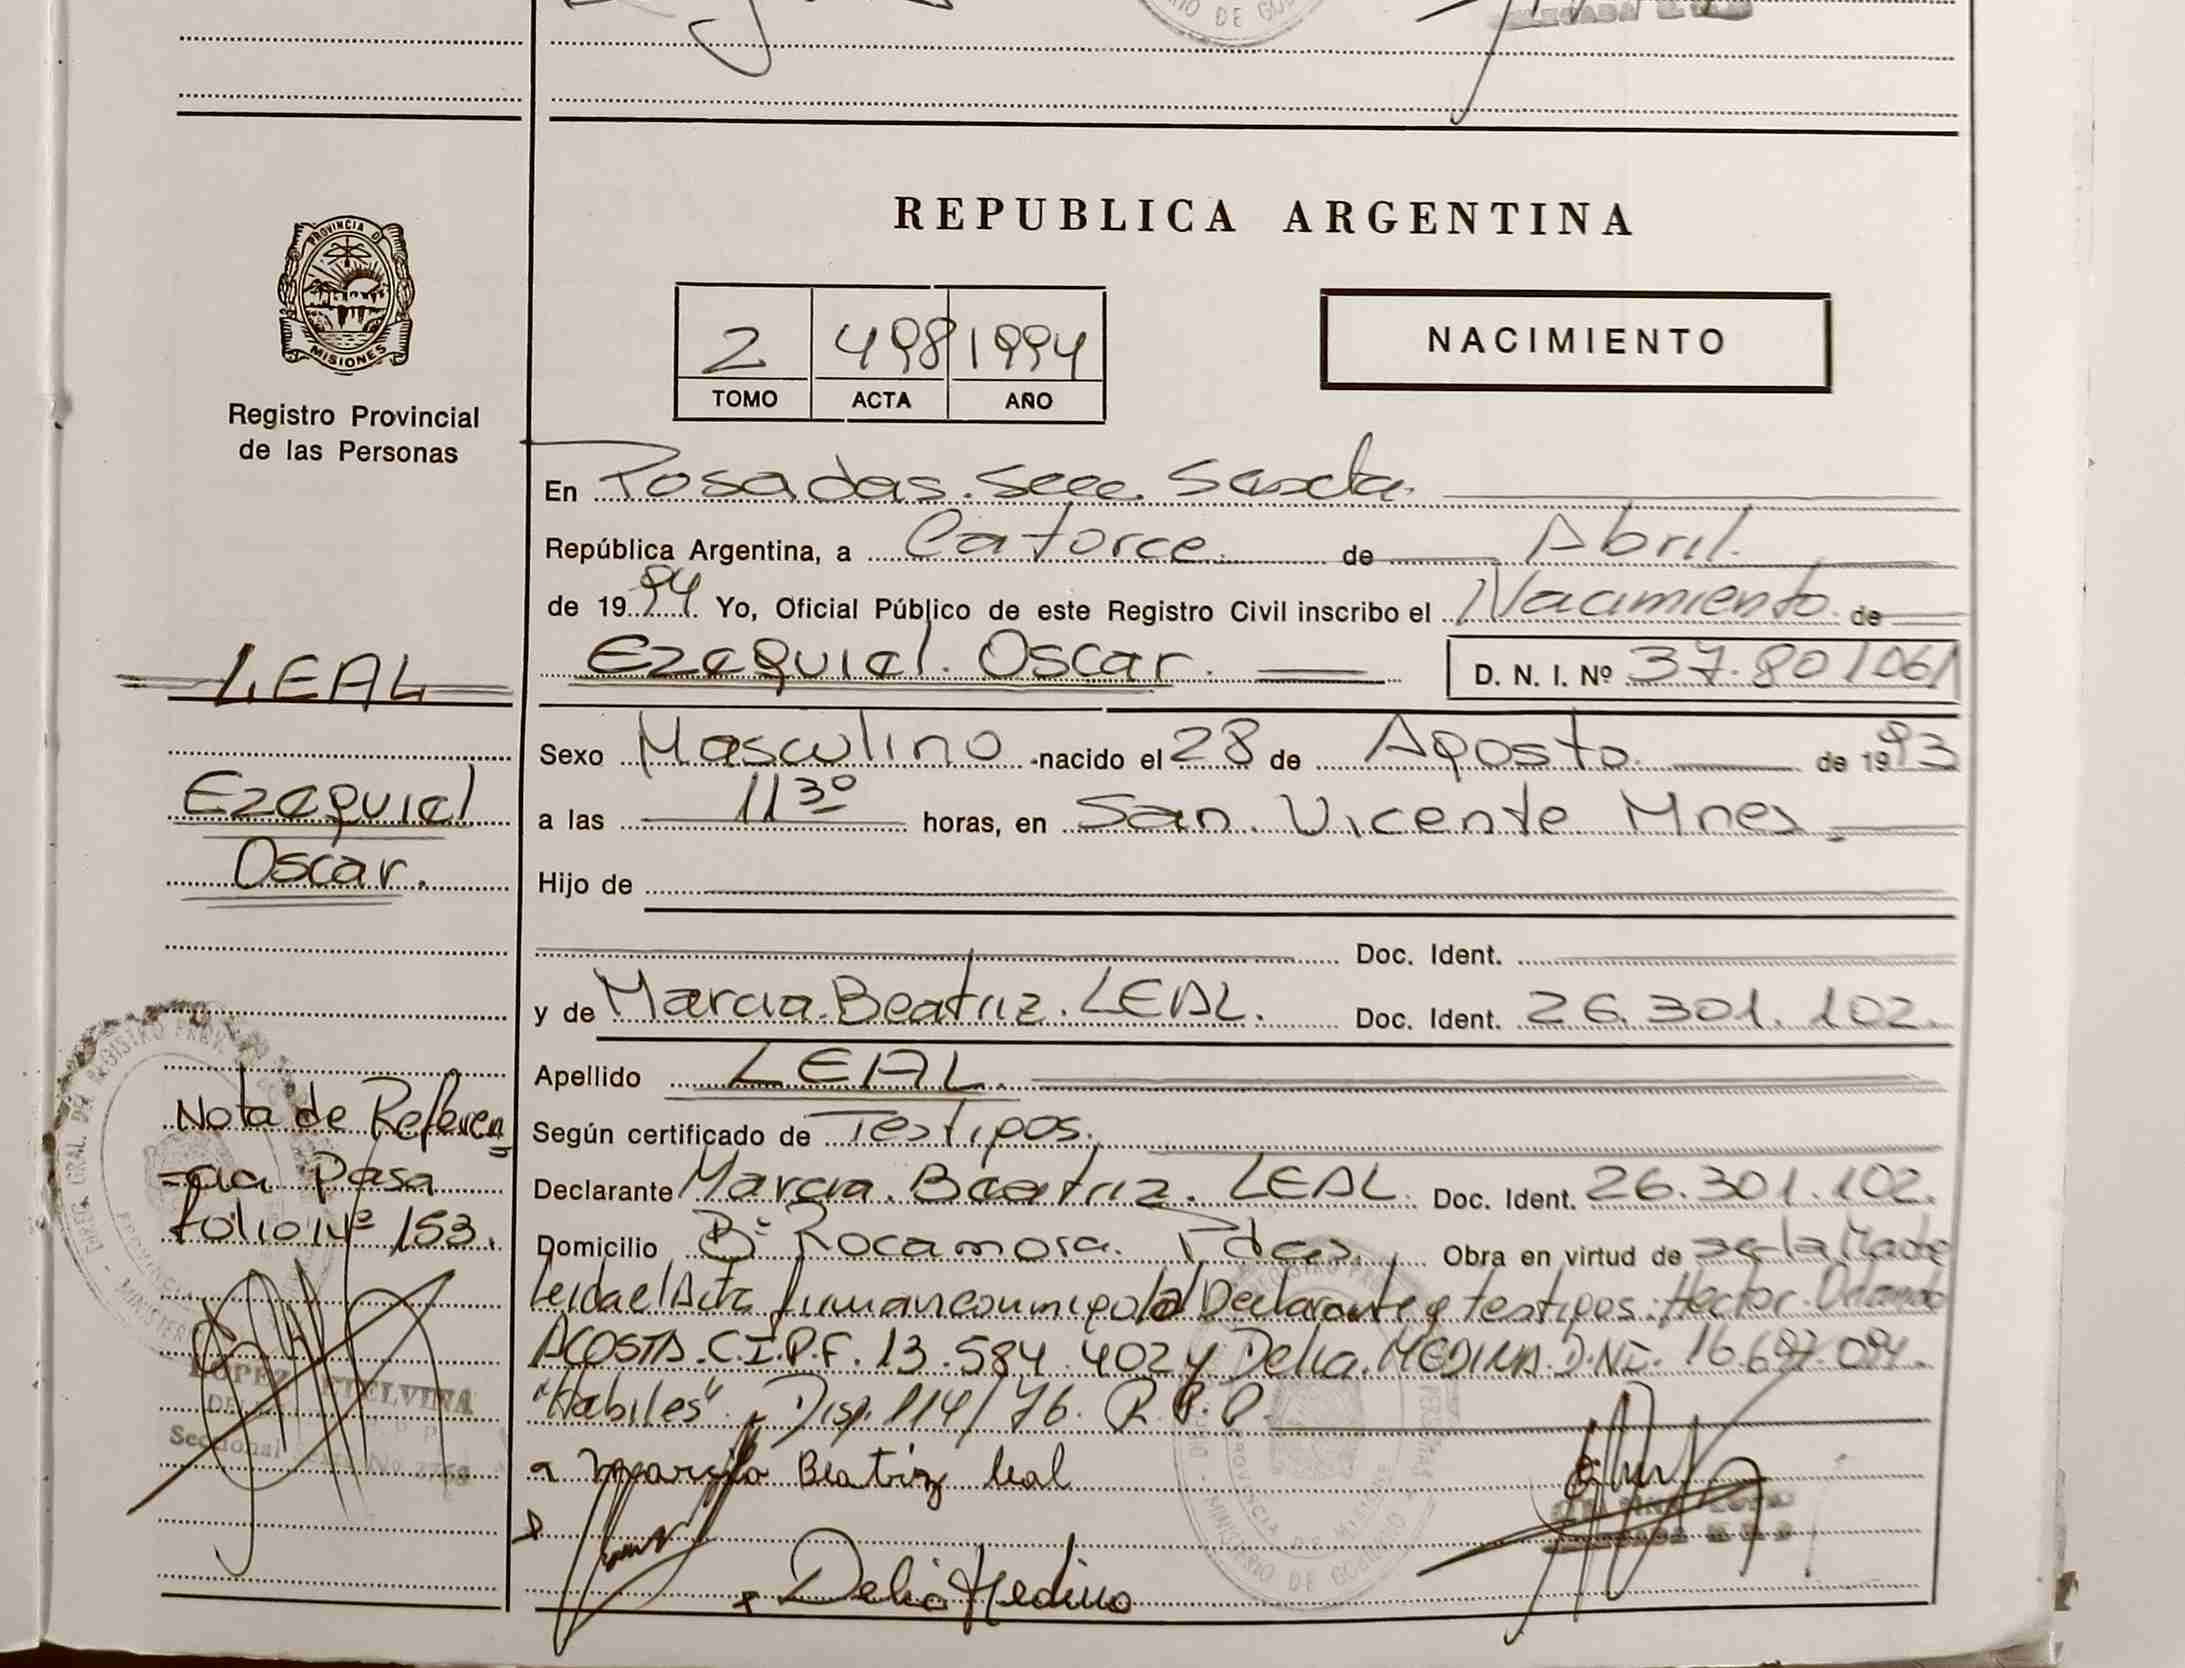 REPUBLICA ARGENTINA
PROVINCIA D
MISIONES
Registro Provincial
de las Personas
2 498 1994
TOMO ACTA AÑO
NACIMIENTO
En Posadas. Secc. Sexta.
República Argentina, a Catorce. de Abril.
de 1994 Yo, Oficial Público de este Registro Civil inscribo el Nacimiento. de
Ezequiel. Oscar. D. N. I. Nº 37.801061
LEAL
Sexo Masculino nacido el 28 de Agosto. de 1993
Ezequiel
Oscar.
a las 1130 horas, en San. Vicente Mnes
Hijo de
Doc. Ident.
y de Marcia. Beatriz. LEAL. Doc. Ident. 26.301.102.
Apellido LEAL.
Según certificado de Testigos.
Declarante Marcia. Beatriz. LEAL. Doc. Ident. 26.301.102.
Domicilio Bº Rocamora. Pdas. Obra en virtud de ser la Madre
Leida el Acta firman conmigo la Declarante y testigos: Hector. Orlando
ACOSTA. C.I.P.F. 13.584.402 y Delia. MEDINA. D.NI. 16.697.094.
"Habiles". Disp. 114/76. R.P.P.
Marcia Beatriz Leal
Delia Medina
Nota de Referen
=cia Pasa
folio Nº 153.
LOPEZ ETELVINA
Seccional
MINISTERIO DE GOBIERNO
PROVINCIA DE MISIONES